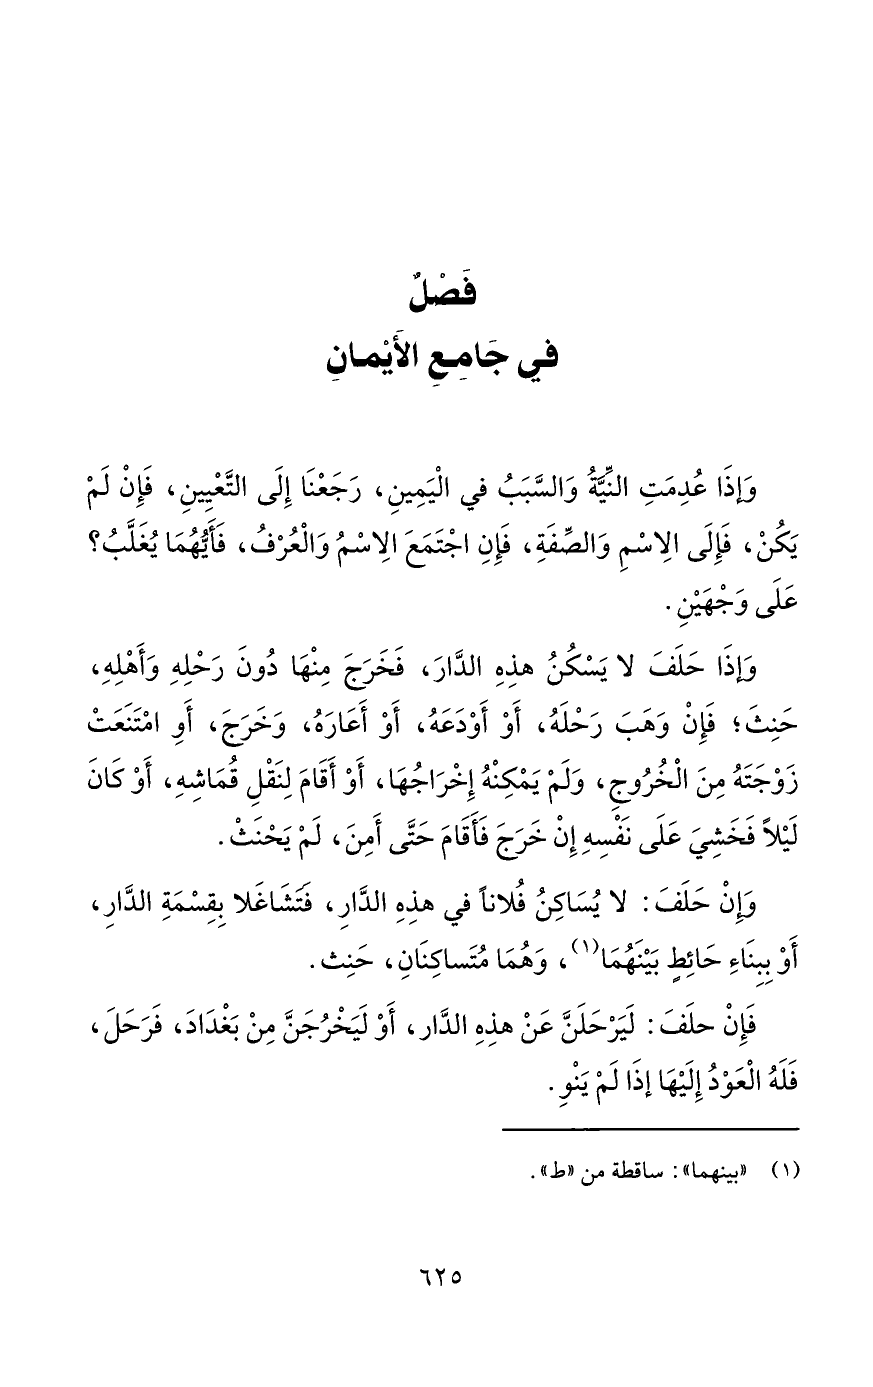 فَصْلٌ
في جَامِعِ الأَيْمانِ
وَإِذَا عُدِمَتِ النِّيَّةُ وَالسَّبَبُ في الْيَمِينِ، رَجَعْنَا إِلَى التَّعْيِينِ، فَإِنْ لَمْ
يَكُنْ، فَإِلَى الِاسْمِ وَالصِّفَةِ، فَإِنِ اجْتَمَعَ الِاسْمُ وَالْعُرْفُ، فَأَيُّهُمَا يُغَلَّبُ؟
عَلَى وَجْهَيْنِ.
وَإِذَا حَلَفَ لا يَسْكُنُ هذِهِ الدَّارَ، فَخَرَجَ مِنْهَا دُونَ رَحْلِهِ وَأَهْلِهِ،
حَنِثَ؛ فَإِنْ وَهَبَ رَحْلَهُ، أَوْ أَوْدَعَهُ، أَوْ أَعَارَهُ، وَخَرَجَ، أَوِ امْتَنَعَتْ
زَوْجَتَهُ مِنَ الْخُرُوجِ، وَلَمْ يَمْكِنْهُ إِخْرَاجُهَا، أَوْ أَقَامَ لِنَقْلِ قُمَاشِهِ، أَوْ كَانَ
لَيْلاً فَخَشِيَ عَلَى نَفْسِهِ إِنْ خَرَجَ فَأَقَامَ حَتَّى أَمِنَ، لَمْ يَحْنَثْ.
وَإِنْ حَلَفَ: لا يُسَاكِنُ فُلاناً في هذِهِ الدَّارِ، فَتَشَاغَلا بِقِسْمَةِ الدَّارِ،
أَوْ بِبِنَاءِ حَائِطٍ بَيْنَهُمَا(١)، وَهُمَا مُتَساكِنَانِ، حَنِث.
فَإِنْ حلَفَ: لَيَرْحَلَنَّ عَنْ هذِهِ الدَّار، أَوْ لَيَخْرُجَنَّ مِنْ بَغْدَادَ، فَرَحَلَ،
فَلَهُ الْعَوْدُ إِلَيْهَا إِذَا لَمْ يَنْوِ.
(١) «بينهما»: ساقطة من «ط».
٦٢٥